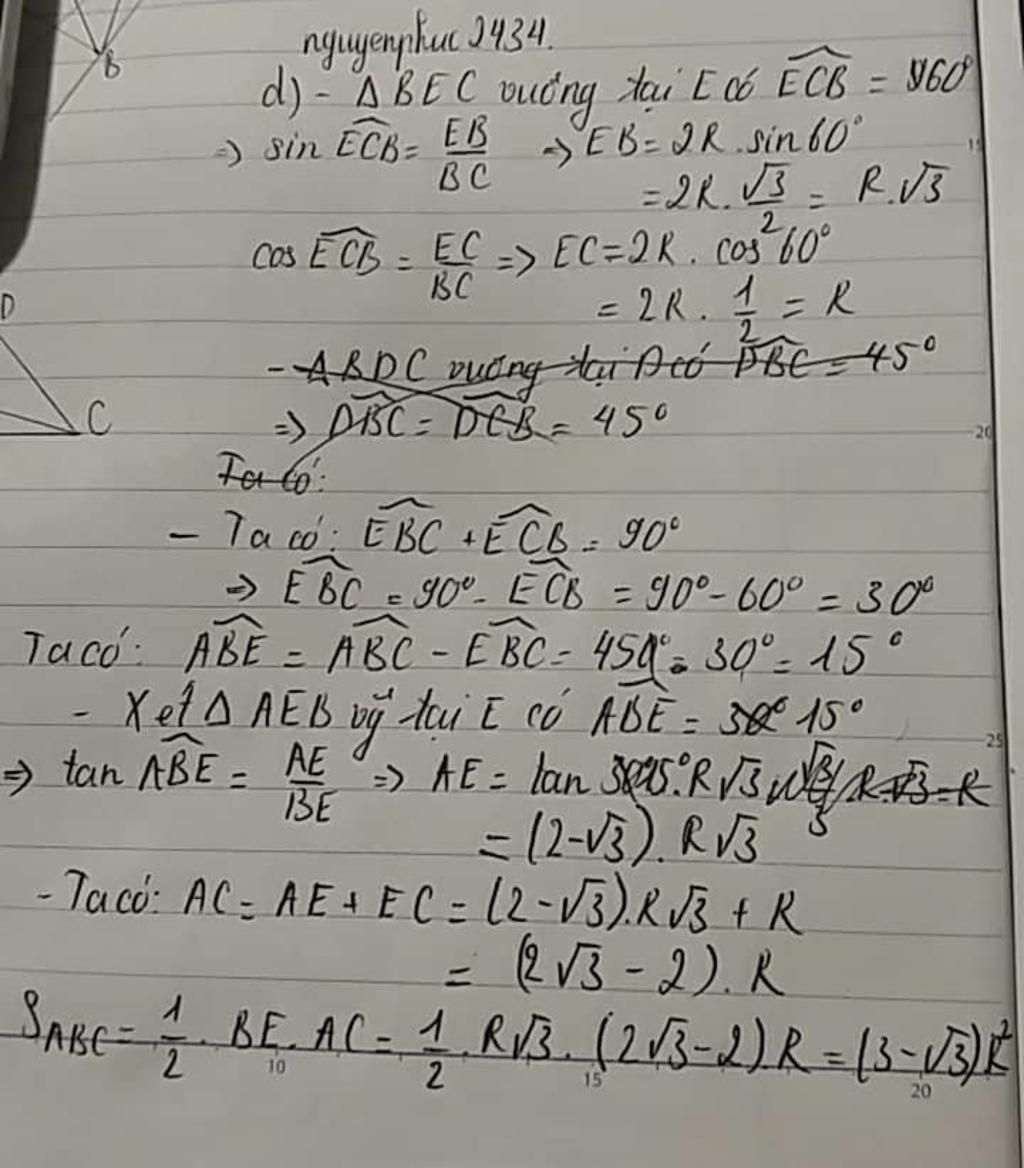 B
nguyenphuc2434.
d) - Δ BEC vuông tại E có ECB̂ = 60°
=> sin ECB̂ = EB/BC => EB = 2R . sin60°
= 2R . √3/2 = R.√3
cos ECB̂ = EC/BC => EC = 2R . cos 60°
= 2R . 1/2 = R
D
- ΔBDC vuông tại D có DBĈ = 45°
C
=> DBĈ = DCB̂ = 45°
Ta có:
- Ta có: EBĈ + ECB̂ = 90°
=> EBĈ = 90° - ECB̂ = 90° - 60° = 30°
Ta có: ABÊ = ABĈ - EBĈ = 45° - 30° = 15°
- Xét Δ AEB vg tại E có ABÊ = 15°
25
=> tan ABÊ = AE/BE => AE = tan 15°. R√3
= (2-√3). R√3
- Ta có: AC = AE + EC = (2-√3).R√3 + R
= (2√3 - 2). R
S ABC = 1/2 . BE. AC = 1/2 . R√3 . (2√3-2) R = (3-√3)R²
10 15 20